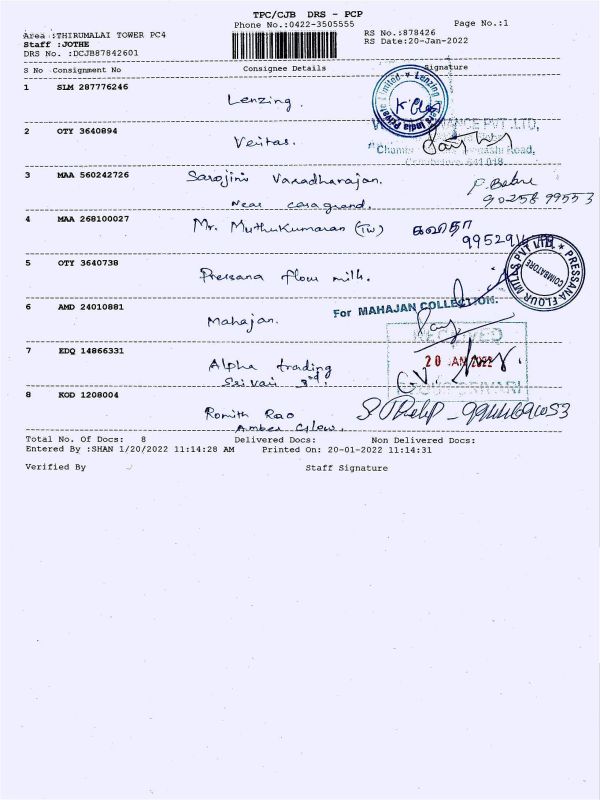 TPC/CJB DRS - PCP
Phone No.:0422-3505555
Page No.:1
Area :THIRUMALAI TOWER PC4
RS No.:878426
Staff :JOTHE
RS Date:20-Jan-2022
DRS No. :DCJB87842601
S No Consignment No Consignee Details Signature
1 SLM 287776246
Lenzing.
2 OTY 3640894
Veritas.
3 MAA 560242726 Sarojini Varadharajan.
Near casagrand. 90258 99553
4 MAA 268100027 Mr. Muthukumaran (TW)
5 OTY 3640738
Pressana flour mill.
PRESSANA FLOUR MILLS PVT LTD
COIMBATORE
6 AMD 24010881
For MAHAJAN COLLECTION.
Mahajan.
RECEIVED
7 EDQ 14866331
20 JAN 2022
Alpha trading
Sri vari 3rd.
8 KOD 1208004
Romith Rao
Amber Glow.
Total No. Of Docs: 8 Delivered Docs: Non Delivered Docs:
Entered By :SHAN 1/20/2022 11:14:28 AM Printed On: 20-01-2022 11:14:31
Verified By Staff Signature